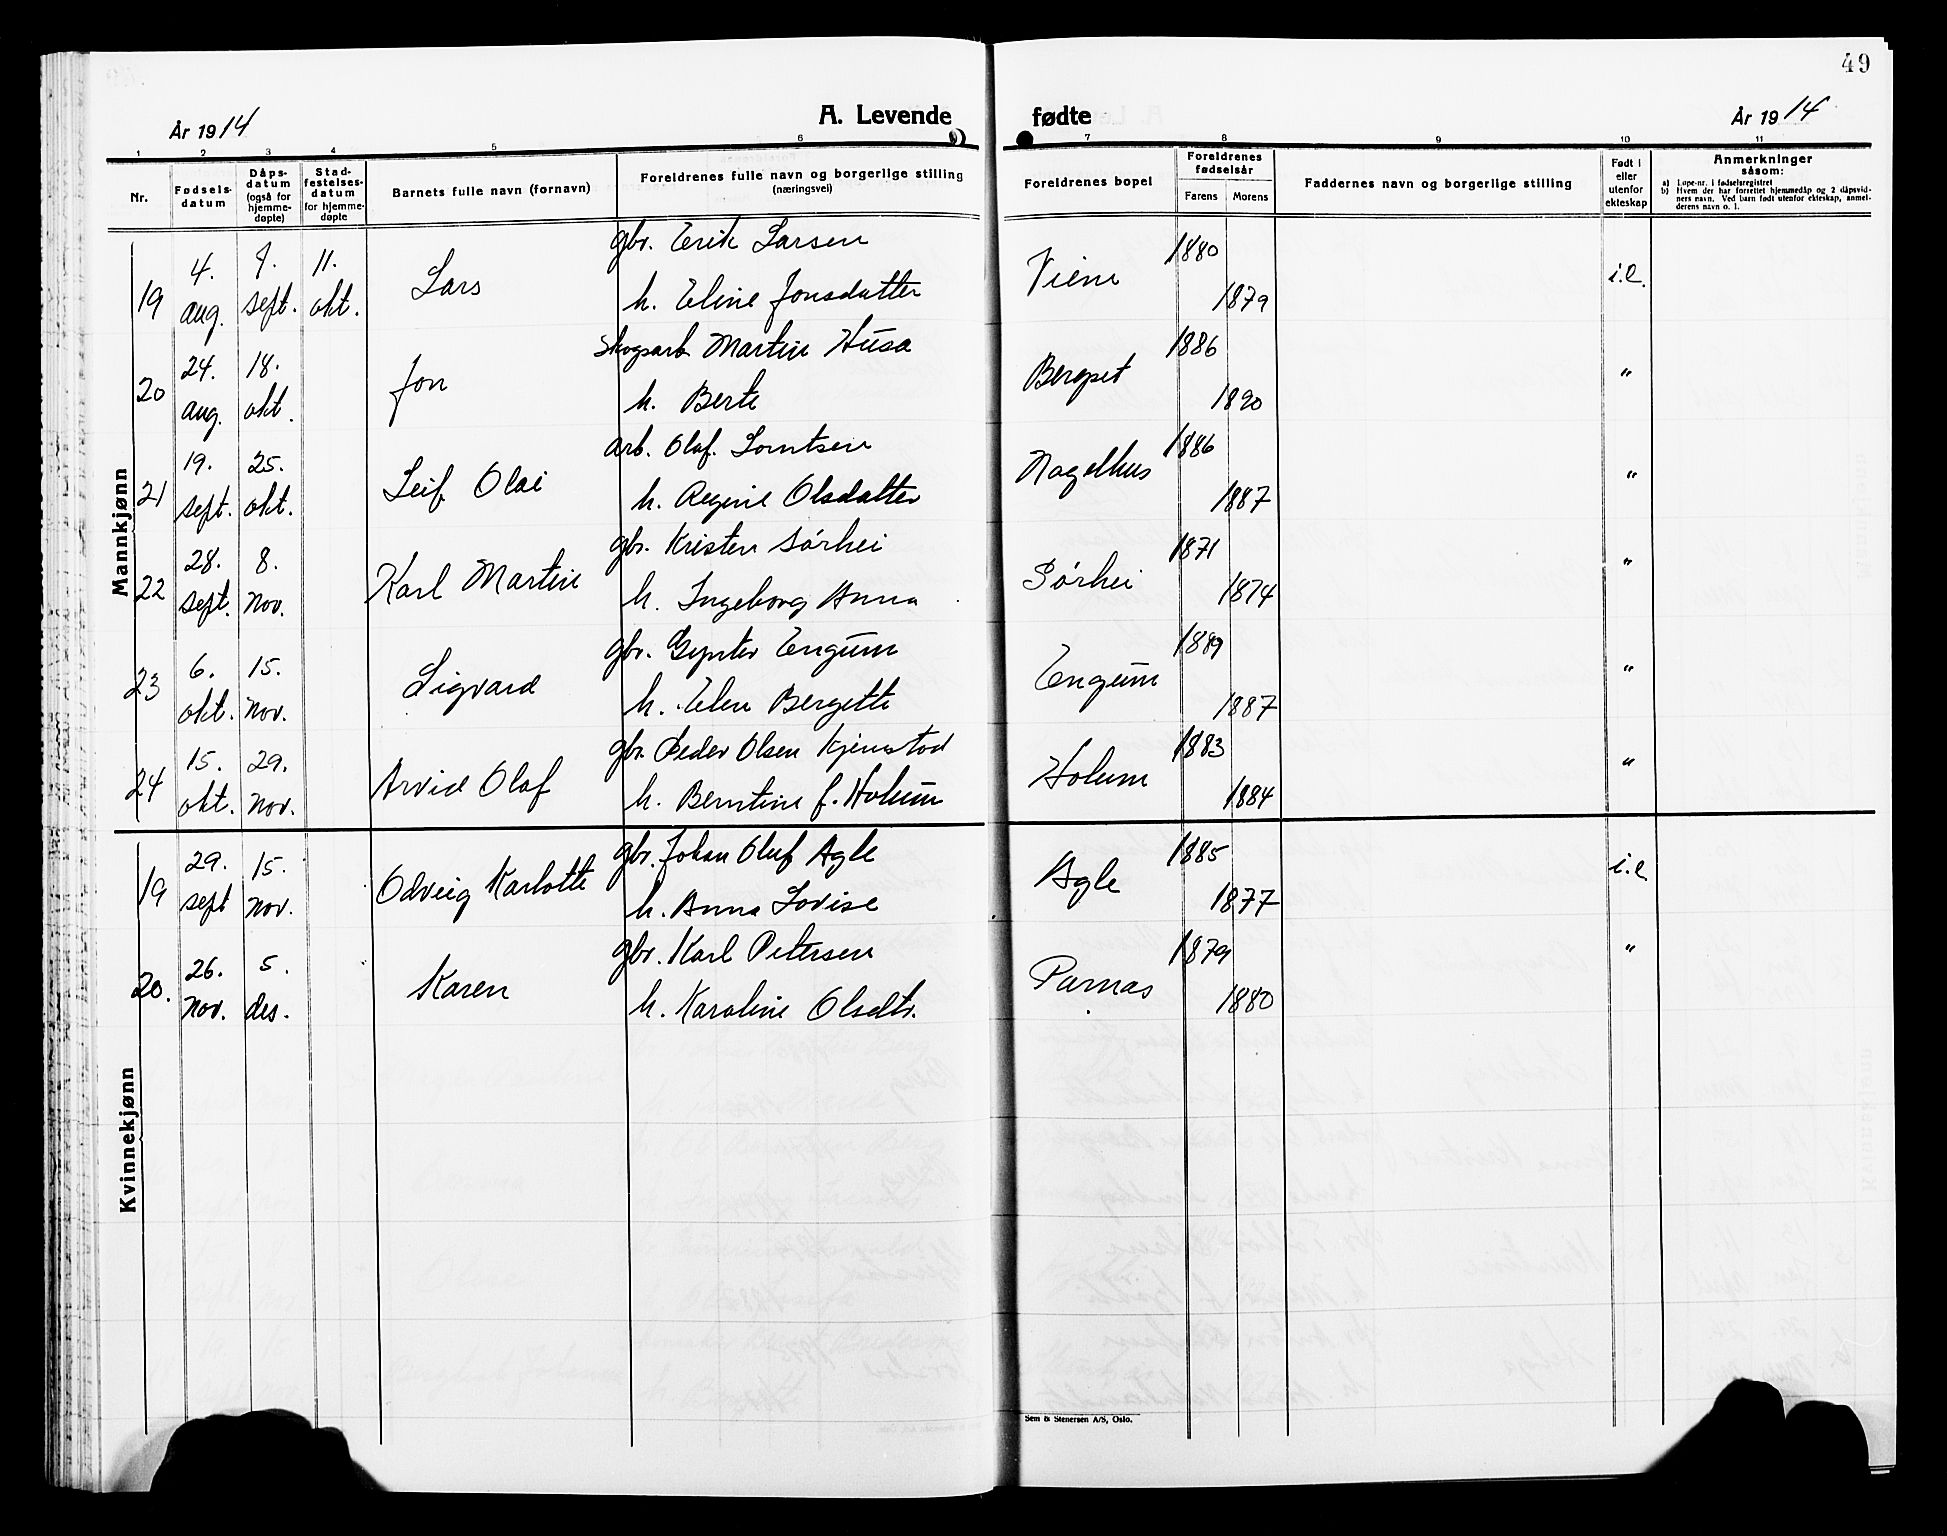 49
År 1914
A. Levende fødte
År 1914
1 2 3 4 5 6 7 8 9 10 11
Nr.
Fødsels-
datum
Dåps-
datum
(også for
hjemme-
døpte)
Stad-
festelses-
datum
for hjemme-
døpte
Barnets fulle navn (fornavn)
Foreldrenes fulle navn og borgerlige stilling
(næringsvei)
Foreldrenes bopel
Foreldrenes
fødselsår
Farens Morens
Faddernes navn og borgerlige stilling
Født i
eller
utenfor
ekteskap
Anmerkninger
såsom:
a) Løpe-nr. i fødselsregistret
b) Hvem der har forrettet hjemmedåp og 2 dåpsvid-
ners navn. Ved barn født utenfor ekteskap, anmel-
derens navn o. l.
Mannkjønn
19 4. aug. 7. sept. 11. okt. Lars
gbr. Erik Larsen
h. Eline Jonsdatter
Viem 1880 1879 i.e.
20 24. aug. 18. okt. Jon
Skogsarb. Martin Husa
h. Berte
Bergset 1886 1890 "
21 19. sept. 25. okt. Leif Olai
arb. Olaf Lorntsen
h. Regine Olsdatter
Nagelhus 1886 1887 "
22 28. sept. 8. nov. Karl Martin
gbr. Kristen Sørhei
h. Ingeborg Anna
Sørhei 1871 1874 "
23 6. okt. 15. nov. Sigvard
gbr. Gynter Engum
h. Elen Bergette
Engum 1889 1887 "
24 15. okt. 29. nov. Arvid Olaf
gbr. Peder Olsen Kjenstad
h. Berntine f. Holum
Holum 1883 1884 "
Kvinnekjønn
19 29. sept 15. nov. Odveig Karlotte
gbr. Johan Oluf Agle
h. Anna Lovise
Agle 1885 1877 i.e.
20. 26. nov. 5. des. Karen
gbr. Karl Petersen
h. Karoline Olsdtr.
Parnas 1879 1880 "
Sem & Stenersen A/S, Oslo.